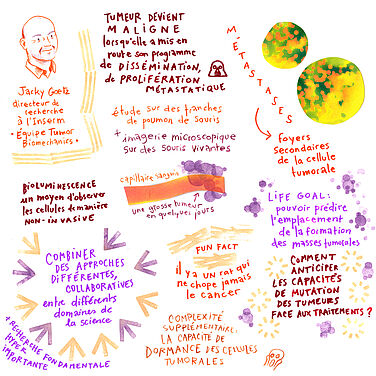 Jacky Goetz
directeur de
recherche
à l'Inserm
• Équipe Tumor
Biomechanics •
TUMEUR DEVIENT
MALIGNE
lorsqu'elle a mis en
route son programme
de DISSÉMINATION,
de PROLIFÉRATION
MÉTASTATIQUE
étude sur des tranches
de poumon de souris
+ imagerie microscopique
sur des souris vivantes
MÉTASTASES
foyers
secondaires
de la cellule
tumorale
BIOLUMINESCENCE
un moyen d'observer
les cellules de manière
NON-INVASIVE
capillaire sanguin
une grosse tumeur
en quelques jours
LIFE GOAL:
pouvoir prédire
l'emplacement
de la formation
des masses tumorales
COMBINER
DES APPROCHES
DIFFÉRENTES,
COLLABORATIVES
entre différents
domaines de
la science
+ RECHERCHE FONDAMENTALE
HYPER
IMPORTANTE
FUN FACT
il y a un rat qui
ne chope jamais
le cancer
COMMENT
ANTICIPER
LES CAPACITÉS
DE MUTATION
DES TUMEURS
FACE AUX TRAITEMENTS ?
COMPLEXITÉ
SUPPLÉMENTAIRE:
LA CAPACITÉ DE
DORMANCE DES CELLULES
TUMORALES